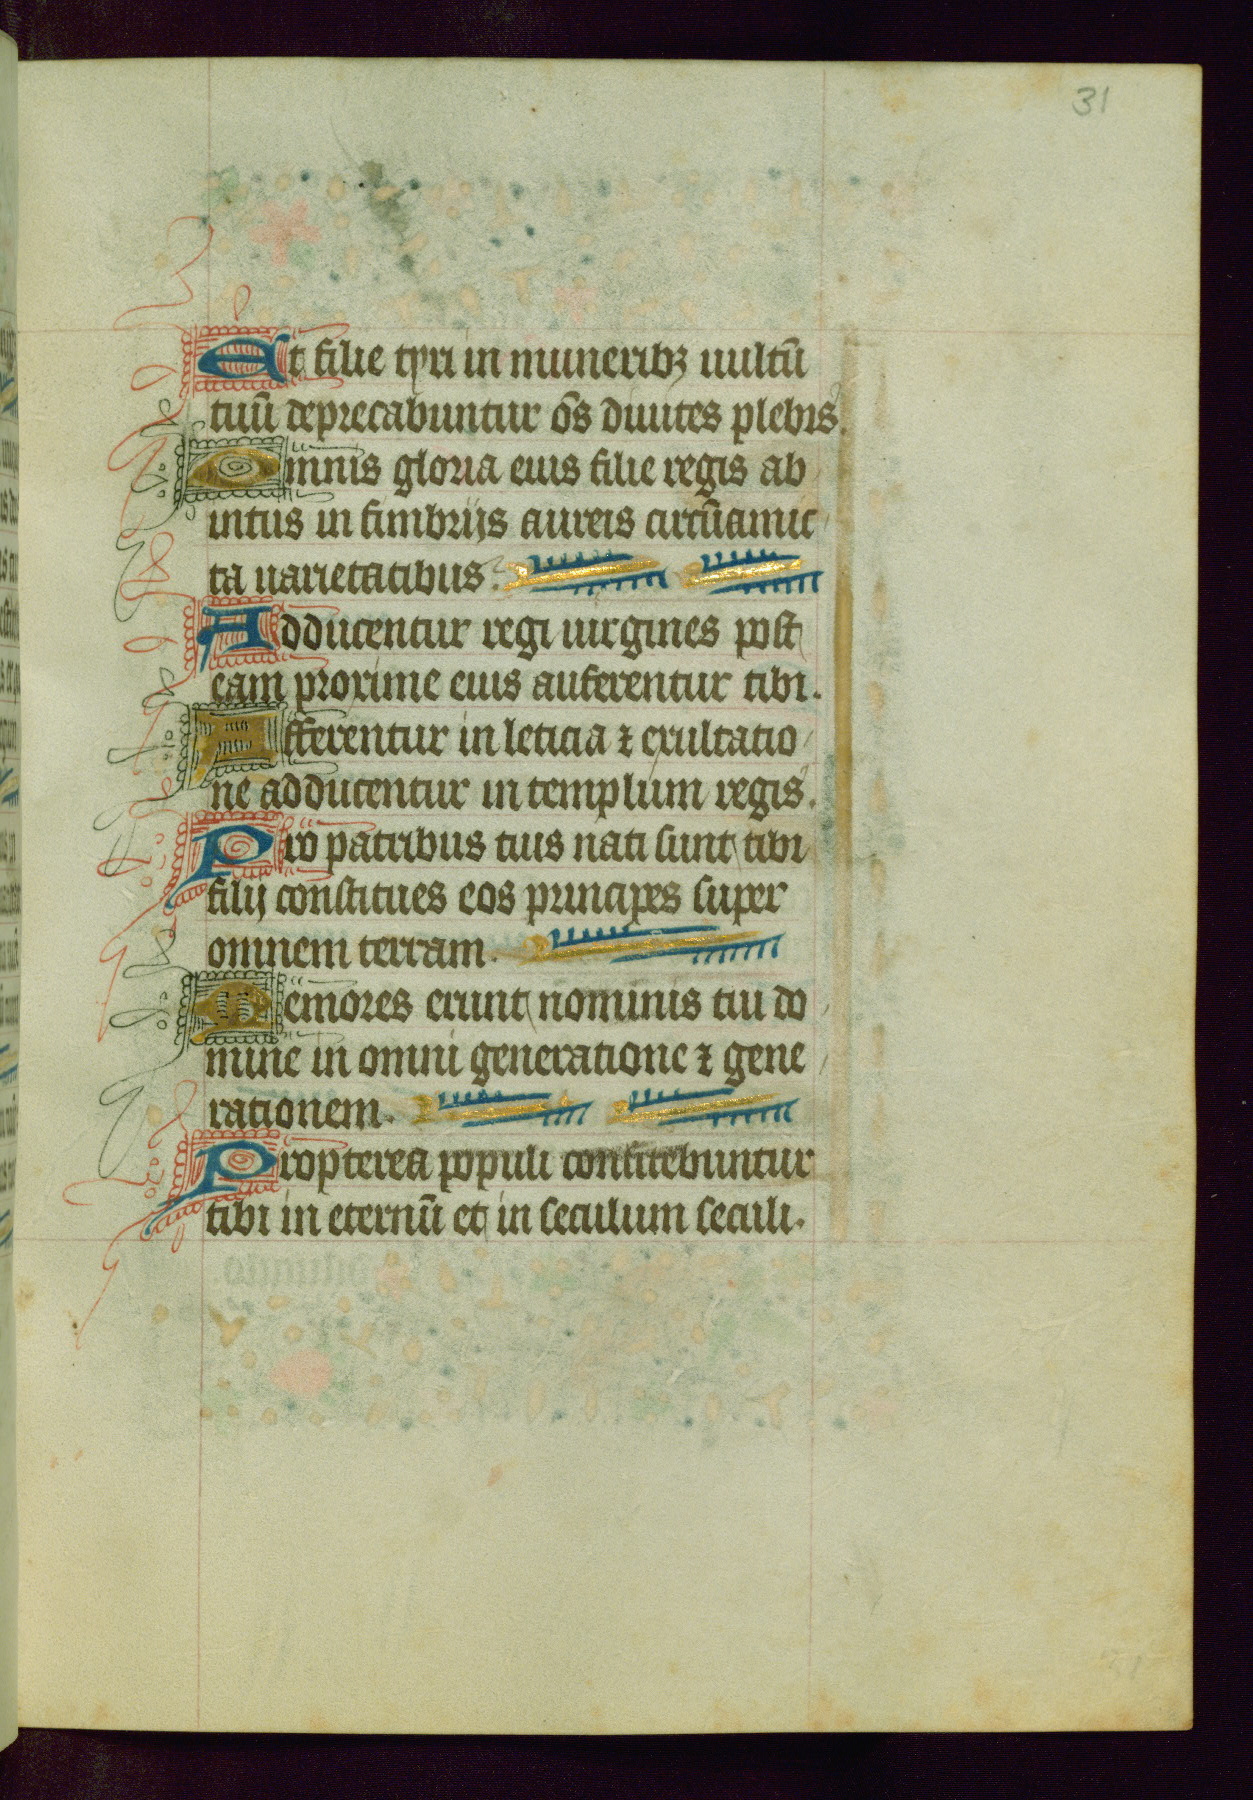 31
Et filie tyri in muneribꝫ uultū
tuū deprecabuntur oēs diuites plebis.
Omnis gloria eius filie regis ab
intus in fimbrijs aureis circūamic
ta uarietatibus.
Adducentur regi uirgines post
eam proxime eius auferentur tibi.
Afferentur in leticia ⁊ exultatio
ne adducentur in templum regis.
Pro patribus tuis nati sunt tibi
filij constitues eos principes super
omnem terram.
Memores erunt nominis tui do
mine in omni generatione ⁊ gene
rationem.
Propterea populi confitebuntur
tibi in eternū et in seculum seculi.